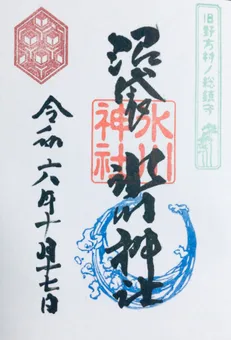 旧野方村ノ総鎮守
沼袋 氷川神社
氷川神社
令和六年十月十七日